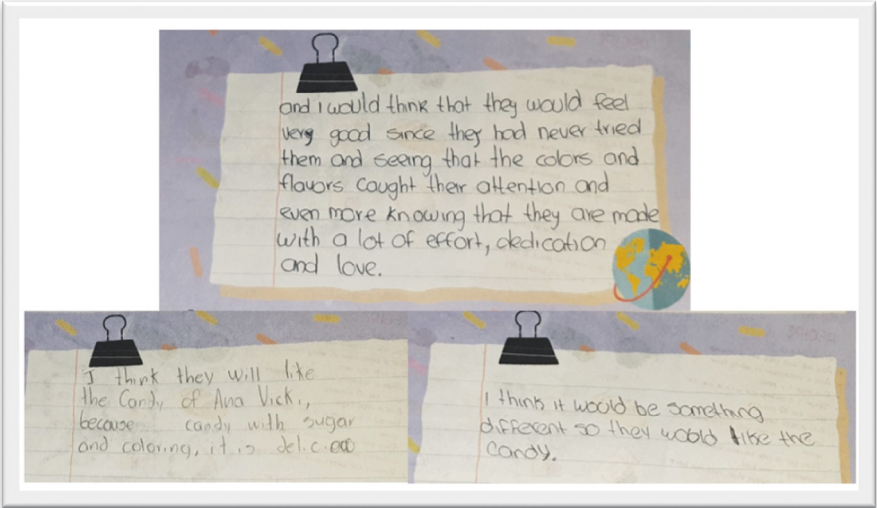 and i would think that they would feel
very good since they had never tried
them and seeing that the colors and
flavors caught their attention and
even more knowing that they are made
with a lot of effort, dedication
and love.
I think they will like
the Candy of Ana Vicki,
because candy with sugar
and coloring, it is
I think it would be something
different so they would like the
candy.